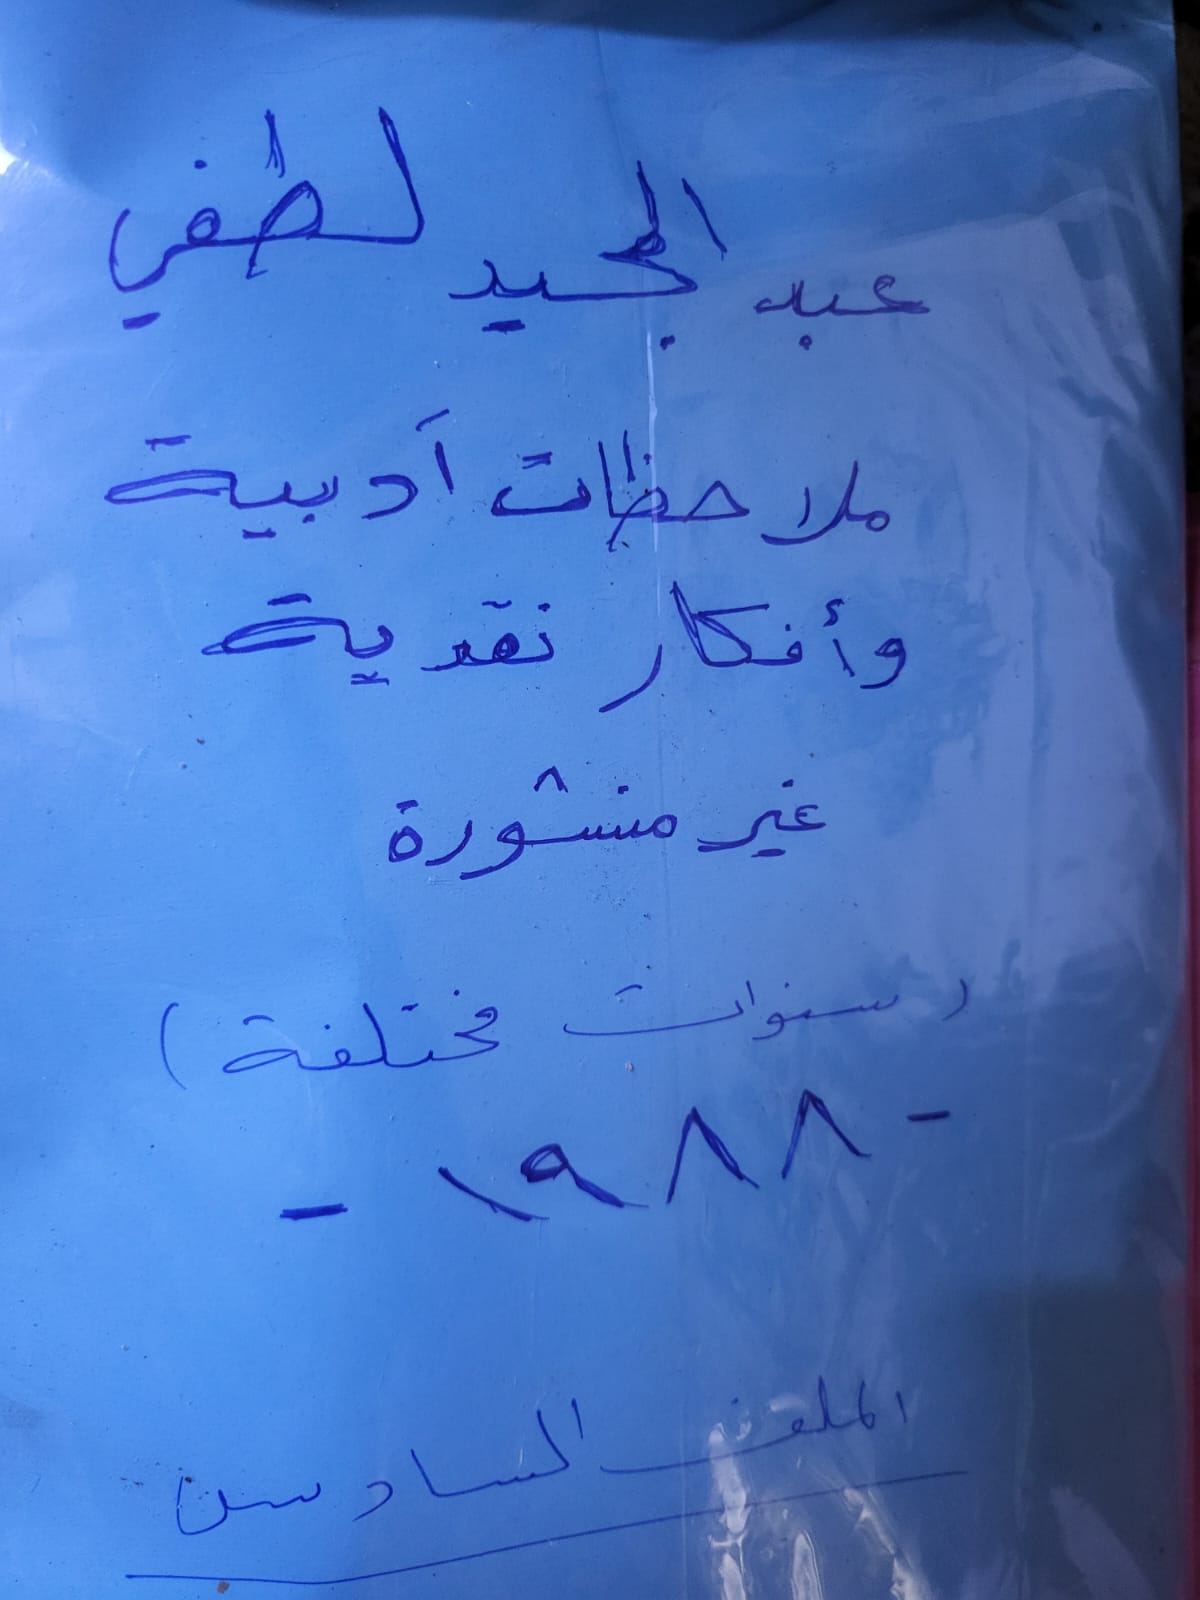 عبد المجيد لطفي
ملاحظات أدبية
وأفكار نقدية
غير منشورة
(سنوات مختلفة)
- ١٩٨٨ -
الملف السادس